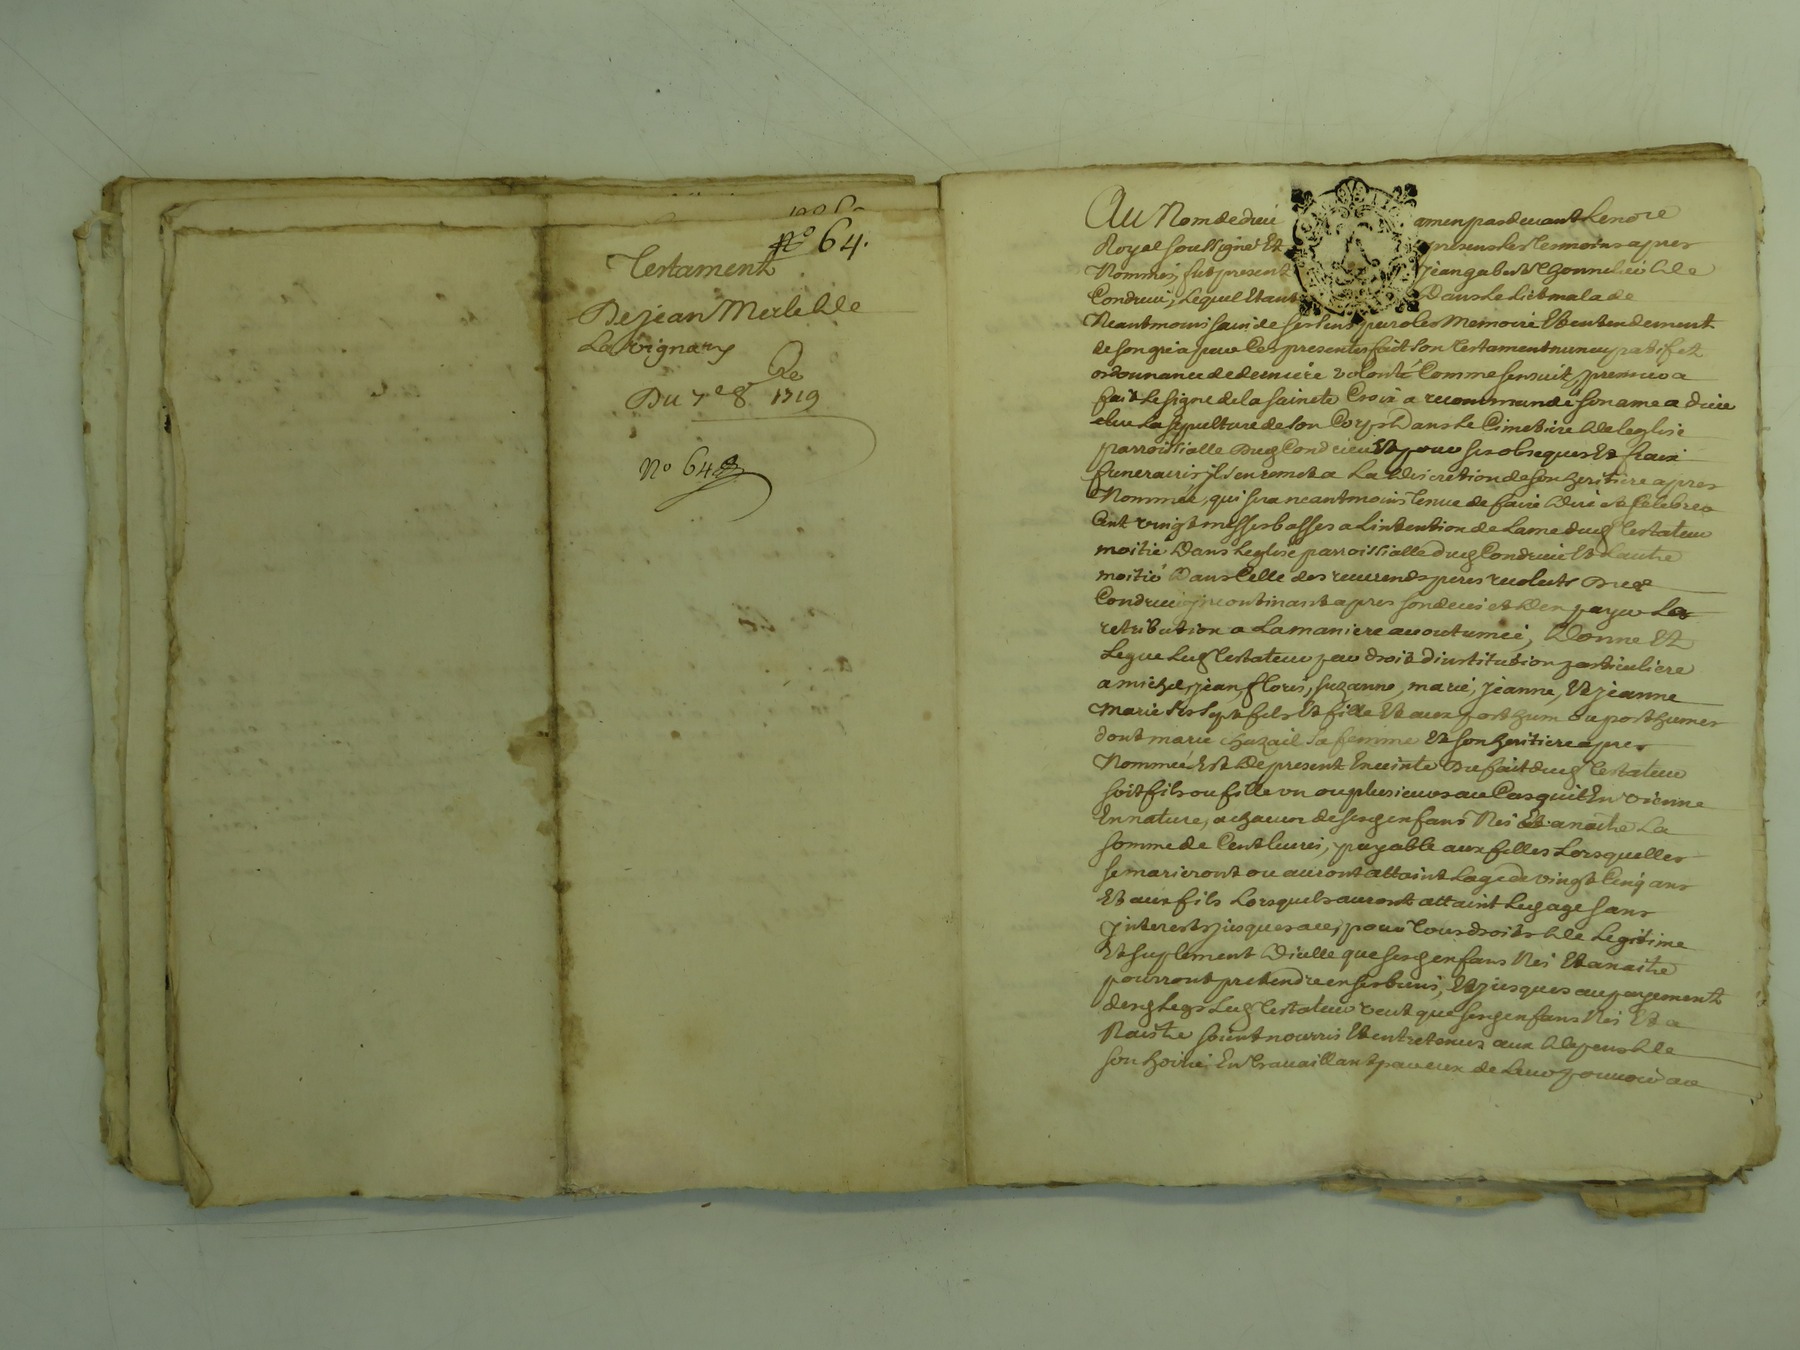 N° 64.
Testament
De jean Merle de
La vignary
Du 7e 8bre 1719
N° 64
Au Nom de dieu amen pardevant Le no.re
Royal soussigné Et presens les tesmoins apres
Nommes, fut present jean gabert de
Condrieu, Lequel Etant Dans Le Lict malade
Neantmoins sain de ses sens, paroles Memoire Et entendement
de son gré a par Ces presentes fait son testament nuncupatif et
ordonnance de derniere volonté Comme sensuit, premier a
fait Le signe de la sainte Croix a recommandé son ame a dieu
elu La sepulture de son Corps Dans Le Cimetiere de leglise
parroissialle dud Condrieu Et pour ses obseques Et fraix
funeraires jl sen remet a La discretion de son heritiere apres
Nommée, qui sera neantmoins tenue de faire dire et celebrer
Cent vingt messes basses a Lintention de Lame dud testateur
moitié Dans Leglise parroissialle dud Condrieu Et Lautre
moitié Dans Celle des reverends peres recolets dud
Condrieu incontinant apres son deces et den payer La
retribution a La maniere accoutumée, Donne Et
Legue Led testateur par droit dinstitution particuliere
a michel, jean, floris, suzanne, marie, jeanne, Et jeanne
marie ses sept fils Et fille Et aux posthum ou posthumes
dont marie chuzail sa femme Et son heritiere apres
Nommée Est de present Enceinte du fait dud testateur
soit fils ou fille un ou plusieurs au Cas quil En vienne
En nature, a chacun de sesd enfans Nés Et a naitre La
somme de Cent livres, payable aux filles Lors quelles
se marieront ou auront attaint Lage de vingt Cinq ans
Et aux fils Lorsquils auront attaint Led age sans
jnterests jusques a ce, pour tous droits de Legitime
Et suplement dicelle que sesd enfans Nés Et a naitre
pourront pretendre en ses biens, Et jusques au payement
desd Legs Led testateur veut que sesd enfans Nés Et a
Naistre soient nourris Et entretenus aux depens de
son hoirie En travaillant par eux de Leur pouvoir au